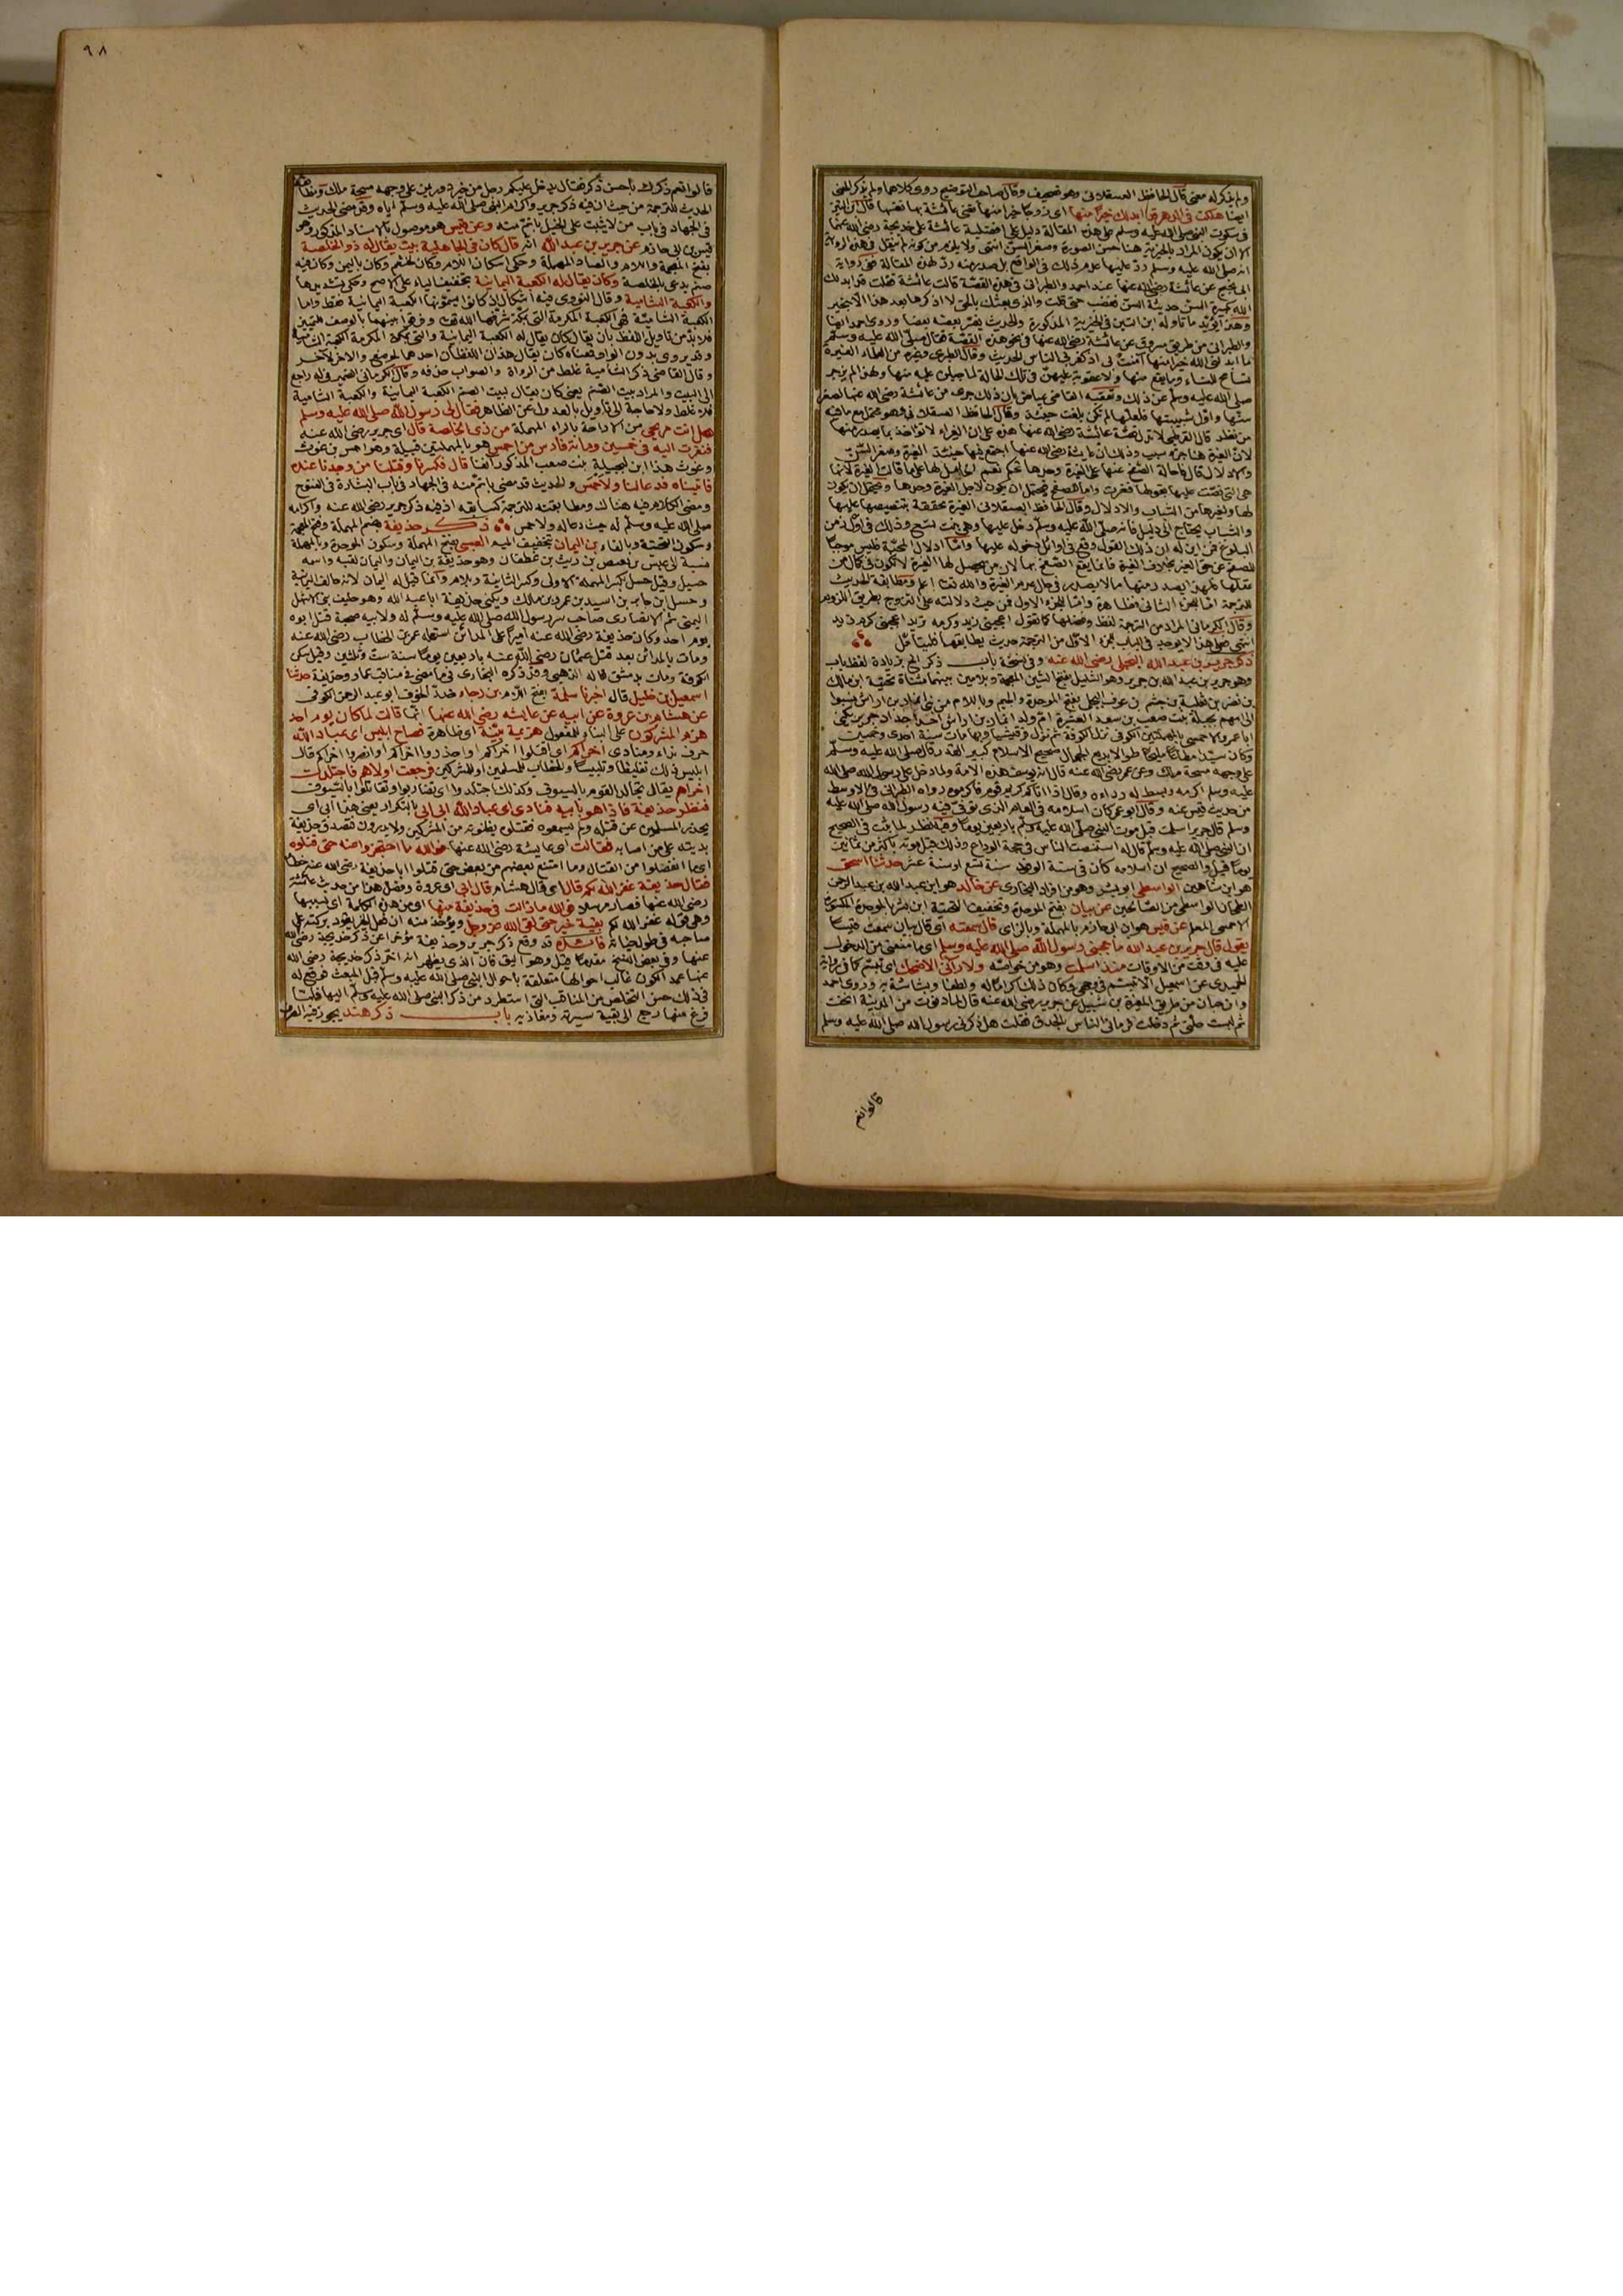 ولم يذكر له معنى قال الحافظ العسقلاني وهو تصحيف وقال صاحب التوضيح روى كلاهما ولم يذكر المعنى
ايضا هلكت في الدهر قد ابدلك الله خيرا منها اى زوجا خيرا منها تعنى عائشة بها نفسها قال ابن التين
في سكوت النبي صلى الله عليه وسلم على هذه المقالة دليل على افضلية عائشة على خديجة رضى الله عنهما
الا ان يكون المراد بالخيرية هنا حسن الصورة وصغر السن انتهى ولا يلزم من كونه لم ينقل في هذه الرواية
انه صلى الله عليه وسلم رد عليها عدم ذلك في الواقع بل صدر منه رد لهذه المقالة ففى رواية
ابى نجيح عن عائشة رضى الله عنها عند احمد والطبرانى في هذه القصة قالت عائشة فقلت قد ابدلك
الله بكبيرة السن حديثة السن فغضب حتى قلت والذى بعثك بالحق لا اذكرها بعد هذا الا بخير
وهذا يؤيد ما تاوله ابن التين في الخيرية المذكورة والحديث يفسر بعضه بعضا وروى احمد ايضا
والطبرانى من طريق مسروق عن عائشة رضى الله عنها في نحو هذه القصة فقال صلى الله عليه وسلم
ما ابدلنى الله خيرا منها آمنت بى اذ كفر بى الناس الحديث وقال الطبرى وغيره من العلماء الغيرة
تسامح للنساء وما يقع منها ولا عقوبة عليهن في تلك الحالة لما جبلن عليه منها ولهذا لم يزجر
صلى الله عليه وسلم عن ذلك وتعقبه القاضى عياض بان ذلك جرى من عائشة رضى الله عنها لصغر
سنها واول شبيبتها فلعلها لم تكن بلغت حينئذ وقال الحافظ العسقلانى وهو محتمل مع ما فيه
من نظر قال القرطبى لا تدل قصة عائشة رضى الله عنها هذه على ان الغيراء لا تؤاخذ بما يصدر منها
لان الغيرة هنا جزء سبب وذلك ان عائشة رضى الله عنها اجتمع فيها حينئذ الغيرة وصغر السن
والادلال قال فاحالة الصفح عنها على الغيرة وحدها تحكم نعم الحامل لها على ما قالت الغيرة لانها
هى التى نصت عليها بقولها فغرت واما الصفح فيحتمل ان يكون لاجل الغيرة وحدها ويحتمل ان يكون
لها ولغيرها من الشباب والادلال وقال الحافظ العسقلانى الغيرة محققة بتنصيصها عليها
والشباب يحتاج الى دليل فانه صلى الله عليه وسلم دخل عليها وهى بنت تسع وذلك في اول زمن
البلوغ فمن اين له ان ذلك القول وقع في اوائل دخوله عليها واما ادلال المحبة فليس موجبا
للصفح عن حق الغير بخلاف الغيرة فانما يقع الصفح بها لان من يحصل لها الغيرة لا تكون في كمال من
عقلها فلهذا يصدر منها ما لا يصدر في حال عدم الغيرة والله تعالى اعلم ومطابقة الحديث
للترجمة اما للجزء الثانى فظاهرة واما للجزء الاول فمن حيث دلالته على التزوج بطريق اللزوم
وقال الكرمانى المراد من الترجمة لفظ وفضلها كما تقول اعجبنى زيد وكرمه تريد اعجبنى كرم زيد
انتهى هذا لا يوجد في الباب للجزء الاول من الترجمة حديث يطابقها فليتأمل
ذكر جرير بن عبد الله البجلى رضى الله عنه وفي نسخة باب ذكر الخ بزيادة لفظ باب
وهو جرير بن عبد الله بن جرير وهو الشليل بفتح الشين المعجمة وبلامين بينهما مثناة تحتية ابن مالك
بن نضر بن ثعلبة بن جشم بن عوف البجلى بفتح الموحدة والجيم وباللام من بنى انمار بن اراش نسبوا
الى امهم بجيلة بنت صعب بن سعد العشيرة ام ولد انمار بن اراش احد اجداد جرير يكنى
ابا عمرو الاحمسى بالمهملتين الكوفى نزل الكوفة ثم نزل قرقيسيا وبها مات سنة احدى وخمسين
وكان سيدا مطاعا مليحا طوالا بديع الجمال صحيح الاسلام كبير القدر قال صلى الله عليه وسلم
على وجهه مسحة ملك وعن عمر رضى الله عنه قال انه يوسف هذه الامة ولما دخل على رسول الله صلى الله
عليه وسلم اكرمه وبسط له رداءه وقال اذا اتاكم كريم قوم فاكرموه رواه الطبرانى في الاوسط
من حديث قيس عنه وقال ابو عمر كان اسلامه في العام الذى توفى فيه رسول الله صلى الله عليه
وسلم قال جرير اسلمت قبل موت النبي صلى الله عليه وسلم باربعين يوما وفيه نظر لما ثبت في الصحيح
ان النبي صلى الله عليه وسلم قال له استنصت الناس في حجة الوداع وذلك قبل موته باكثر من ثمانين
يوما قيل والصحيح ان اسلامه كان في سنة الوفود سنة تسع او سنة عشر حدثنا اسحق
هو ابن شاهين الواسطى ابو بشر وهو من افراد البخارى عن خالد هو ابن عبد الله بن عبد الرحمن
الطحان الواسطى من الصالحين عن بيان بفتح الموحدة وتخفيف التحتية ابن بشر بالموحدة المكسورة
الاحمسى المعلم عن قيس هو ابن ابى حازم بالمهملة وبالزاى قال سمعته اى قال بيان سمعت قيسا
يقول قال جرير بن عبد الله ما حجبنى رسول الله صلى الله عليه وسلم اى ما منعنى من الدخول
عليه في وقت من الاوقات منذ اسلمت وهو من خواصه ولا رآنى الا ضحك اى تبسم كما في رواية
الحميدى عن اسمعيل الا تبسم في وجهى وكان ذلك اكراما له ولطفا وبشاشة به وروى احمد
وابن حبان من طريق المغيرة بن شبيل عن جرير رضى الله عنه قال لما دنوت من المدينة انخت
ثم لبست حلتى ثم دخلت فرمانى الناس بالحدق فقلت هل ذكرنى رسول الله صلى الله عليه وسلم
قالوا نعم
٩٨
قالوا نعم ذكرك باحسن ذكر فقال يدخل عليكم رجل من خير ذى يمن على وجهه مسحة ملك ومطابقة
الحديث للترجمة من حيث ان فيه ذكر جرير واكرام النبي صلى الله عليه وسلم اياه وقد مضى الحديث
في الجهاد في باب من لا يثبت على الخيل باتم منه وعن قيس هو موصول بالاسناد المذكور وهو
قيس بن ابى حازم عن جرير بن عبد الله انه قال كان في الجاهلية بيت يقال له ذو الخلصة
بفتح المعجمة واللام والصاد المهملة وحكى اسكان اللام وكان لخثعم وكان باليمن وكان فيه
صنم يدعى بالخلصة وكان يقال له الكعبة اليمانية بتخفيف الياء على الاصح وحكى تشديدها
والكعبة الشامية وقال النووى فيه اشكال اذ كانوا يسمونها الكعبة اليمانية فقط واما
الكعبة الشامية فهى الكعبة المكرمة التى بمكة شرفها الله تعالى وفرقوا بينهما بالوصف للتمييز
فلا بد من تاويل اللفظ بان يقال كان يقال له الكعبة اليمانية والتى بمكة المكرمة الكعبة الشامية
وقد يروى بدون الواو فمعناه كان يقال هذان اللفظان احدهما لموضع والاخر لآخر
وقال القاضى ذكر الشامية غلط من الرواة والصواب حذفه وقال الكرمانى الضمير في له راجع
الى البيت والمراد بيت الصنم يعنى كان يقال لبيت الصنم الكعبة اليمانية والكعبة الشامية
فلا غلط ولا حاجة الى التأويل بالعدول عن الظاهر فقال لى رسول الله صلى الله عليه وسلم
هل انت مريحى من الاراحة بالراء المهملة من ذى الخلصة قال اى جرير رضى الله عنه
فنفرت اليه في خمسين ومائة فارس من احمس هو بالمهملتين قبيلة وهو احمس بن غوث
وغوث هذا ابن لبجيلة بنت صعب المذكور آنفا قال فكسرنا وقتلنا من وجدنا عنده
فاتيناه فدعا لنا ولاحمس والحديث قد مضى باتم منه في الجهاد في باب البشارة في الفتوح
ومضى الكلام فيه هناك ومطابقته للترجمة كسابقه اذ فيه ذكر جرير رضى الله عنه واكرامه
صلى الله عليه وسلم له حيث دعا له ولاحمس ذكر حذيفة بضم المهملة وفتح المعجمة
وسكون التحتية وبالفاء بن اليمان بتخفيف الميم العبسى بفتح المهملة وسكون الموحدة وبالمهملة
نسبة الى عبس بن بغيض بن ريث بن غطفان وهو حذيفة بن اليمان واليمان لقبه واسمه
حسيل وقيل حسل بكسر المهملة الاولى وكسر الثانية وبلام وانما قيل له اليمان لانه حالف اليمانية
وحسل ابن جابر بن اسيد بن عمرو بن مالك ويكنى حذيفة ابا عبد الله وهو حليف بنى الاشهل
اليمنى ثم الانصارى صاحب سر رسول الله صلى الله عليه وسلم له ولابيه صحبة قتل ابوه
يوم احد وكان حذيفة رضى الله عنه اميرا على المدائن استعمله عمر بن الخطاب رضى الله عنه
ومات بالمدائن بعد قتل عثمان رضى الله عنه باربعين يوما سنة ست وثلثين وقيل سكن
الكوفة ومات بدمشق قاله الذهبى وقد ذكره البخارى فيما مضى في مناقب عمار وحذيفة حدثنا
اسمعيل بن خليل قال اخبرنا سلمة بفتح اللام بن رجاء ضد الخوف ابو عبد الرحمن الكوفى
عن هشام بن عروة عن ابيه عن عايشه رضى الله عنها انها قالت لما كان يوم احد
هزم المشركون على البناء للمفعول هزيمة بينة اى ظاهرة فصاح ابليس اى عباد الله
حرف نداء ومنادى اخراكم اى اقتلوا اخراكم او احذروا اخراكم او انصروا اخراكم قال
ابليس ذلك تغليظا وتلبيسا والخطاب للمسلمين او للمشركين فرجعت اولاهم فاجتلدت
اخراهم يقال تجالد القوم بالسيوف وكذلك اجتلدوا اى تضاربوا وتقاتلوا بالسيوف
فنظر حذيفة فاذا هو بابيه فنادى اى عباد الله ابى ابى بالتكرار يعنى هذا ابى اى
يحذر المسلمين عن قتله ولم يسمعوه فقتلوه يظنونه من المشركين ولا يدرون فتصدق حذيفة
بديته على من اصابه فقالت اى عايشة رضى الله عنها فوالله ما احتجزوا عنه حتى قتلوه
اى ما انفصلوا من القتال وما امتنع بعضهم من بعض حتى قتلوا ابا حذيفة رضى الله عنه خطأ
فقال حذيفة غفر الله لكم قال اى قال هشام قال ابى اى عروة وفصل هذا من حديث عائشة
رضى الله عنها فصار مرسلا فوالله ما زالت في حذيفة منها اى من هذه الكلمة اى بسببها
وهى قوله غفر الله لكم بقية خير حتى لقى الله عز وجل ويؤخذ منه ان فعل الخير يعود بركته على
صاحبه في طول حياته فائدة قد وقع ذكر جرير وحذيفة مؤخرا عن ذكر خديجة رضى الله
عنها وفي بعض النسخ مقدما قيل وهو اليق فان الذى يظهر انه اخر ذكر خديجة رضى الله
عنها عمدا لكون غالب احوالها متعلقة باحوال النبي صلى الله عليه وسلم قبل المبعث فوقع له
في ذلك حسن التخلص من المناقب التى استطرد من ذكر النبي صلى الله عليه وسلم اليها فلما
فرغ منها رجع الى بقية سيرته ومغازيه باب ذكر هند يجوز فيه الصرف